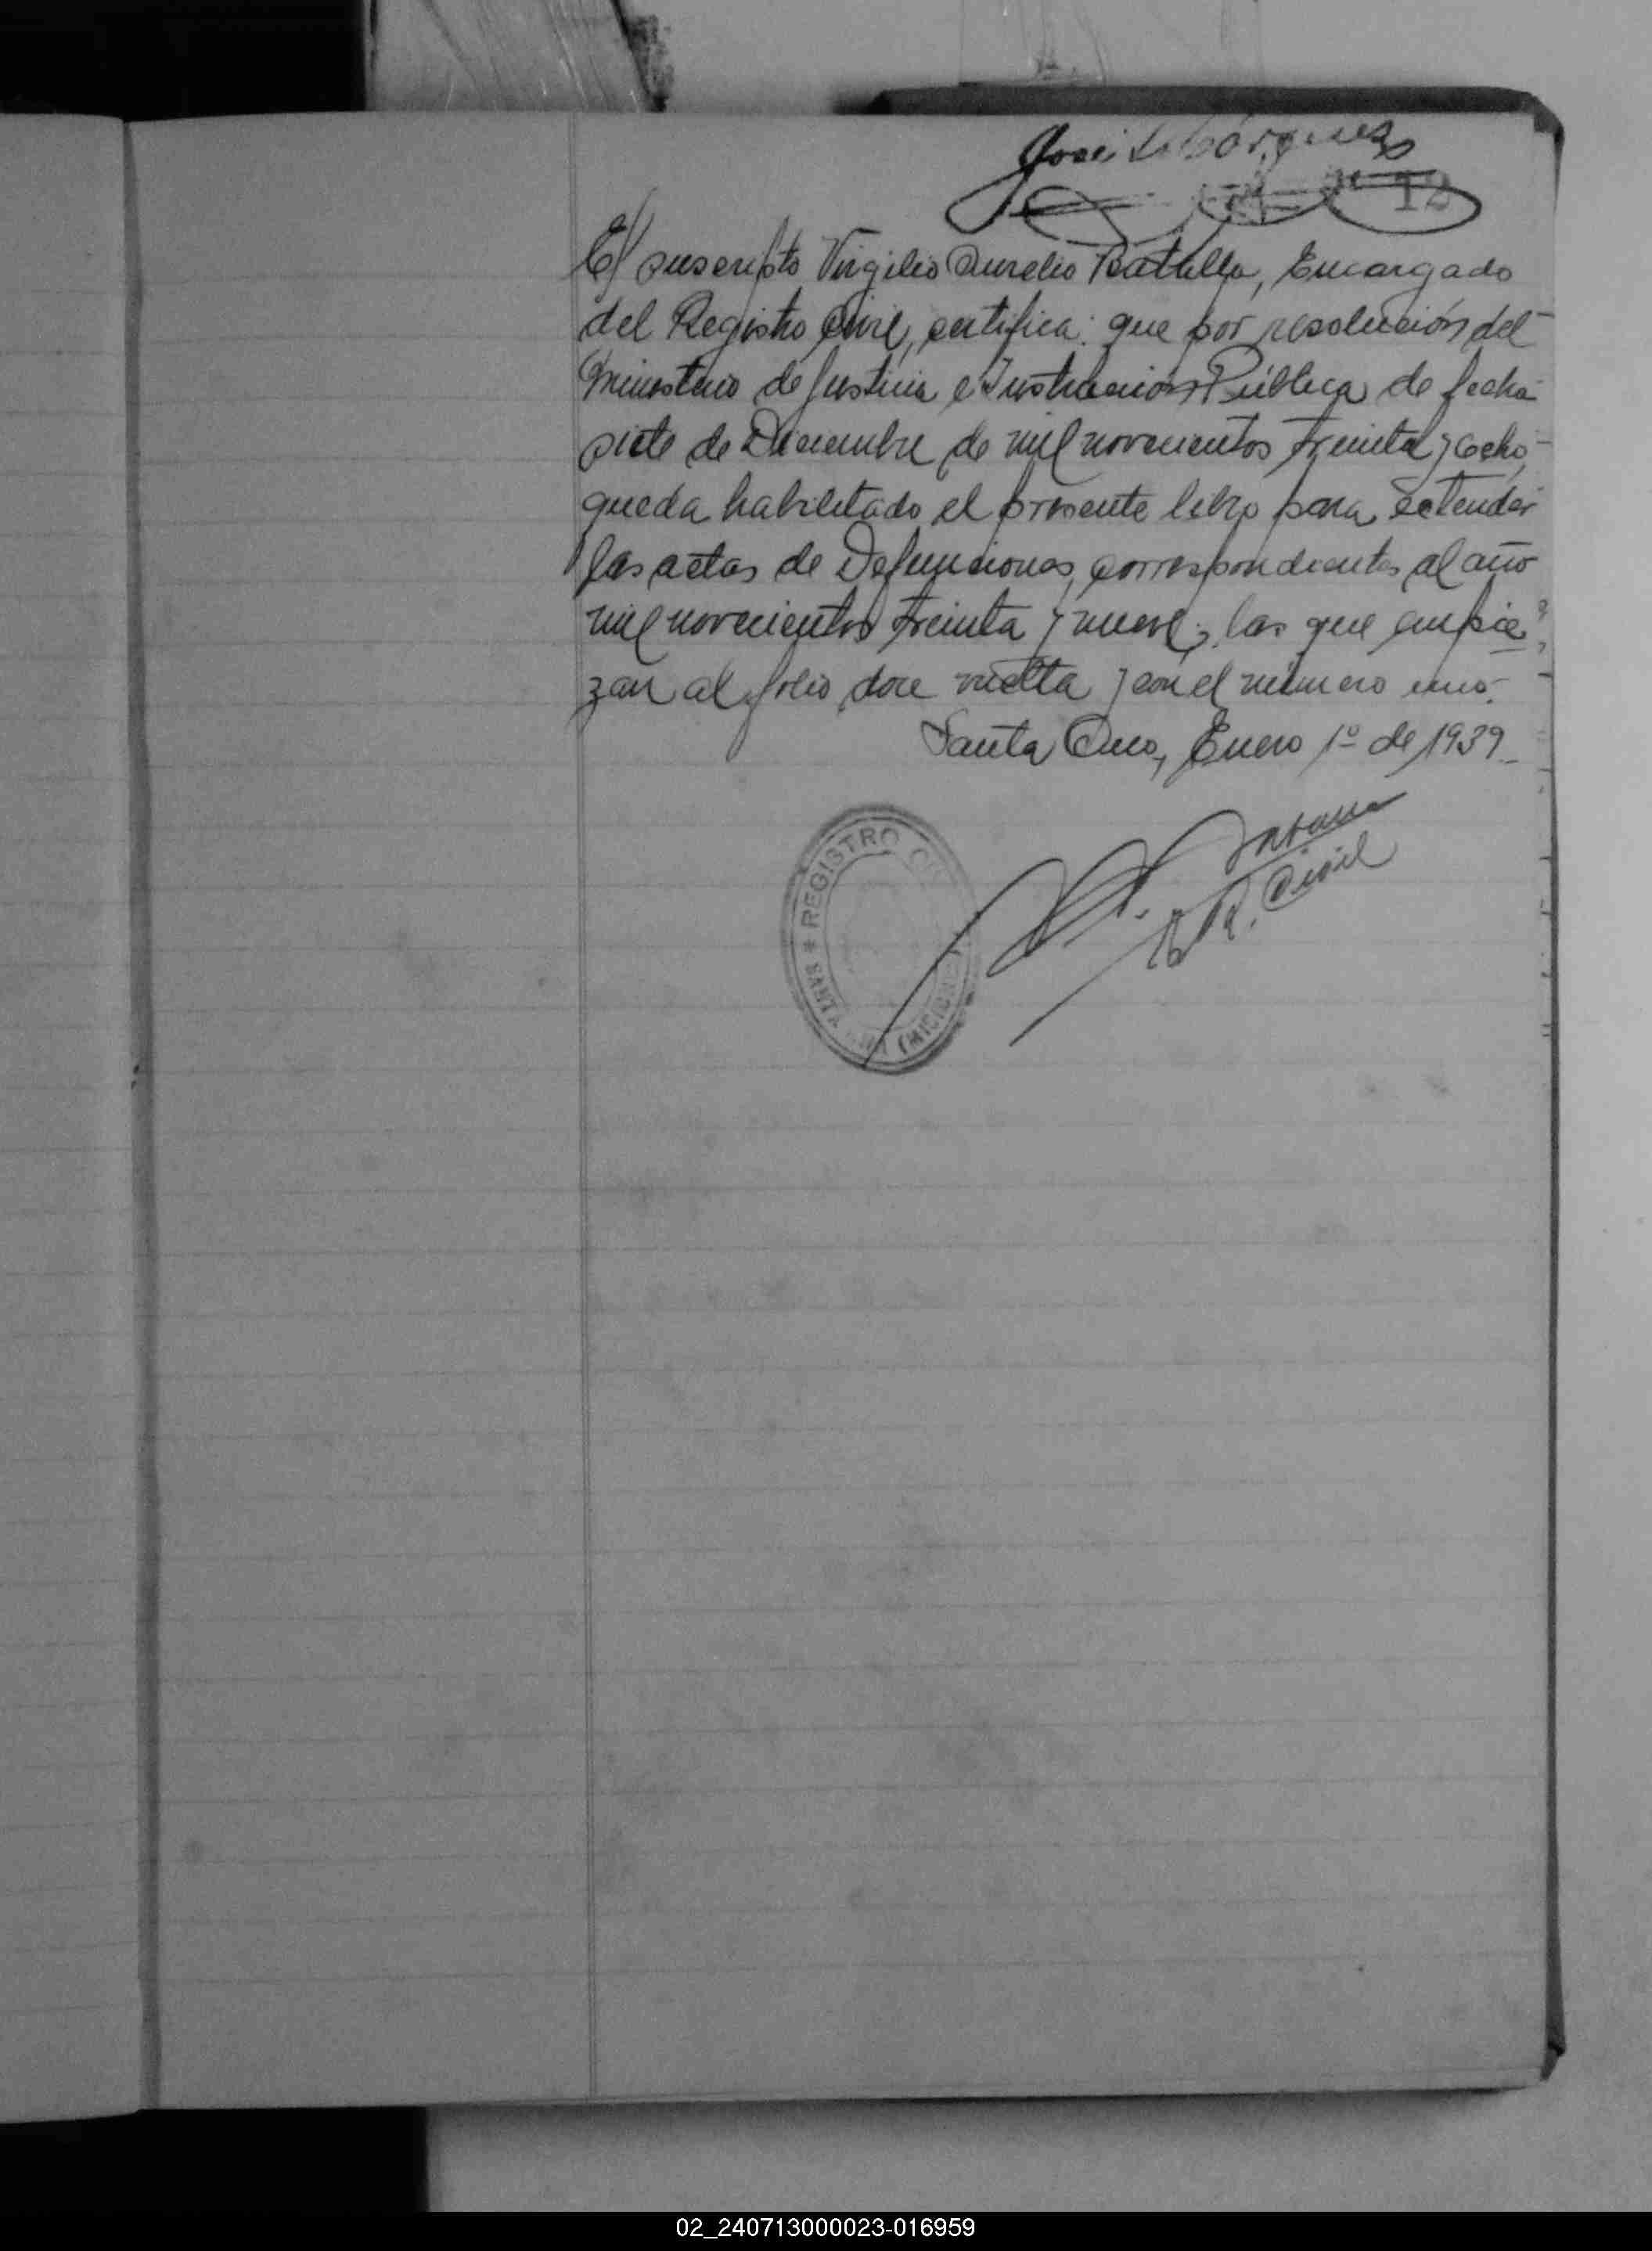 José
12
El suscripto Virgilio Aurelio Batalla, Encargado
del Registro Civil, certifica: que por resolución del
Ministerio de Justicia e Instrucción Pública de fecha
siete de Diciembre de mil novecientos treinta y ocho,
queda habilitado el presente libro para extender
las actas de Defunciones correspondientes al año
mil novecientos treinta y nueve; las que empie
zan al folio doce vuelta y con el número uno.
Santa Ana, Enero 1º de 1939.
E. R. Civil
REGISTRO CIVIL
SANTA ANA (MISIONES)
02_240713000023-016959